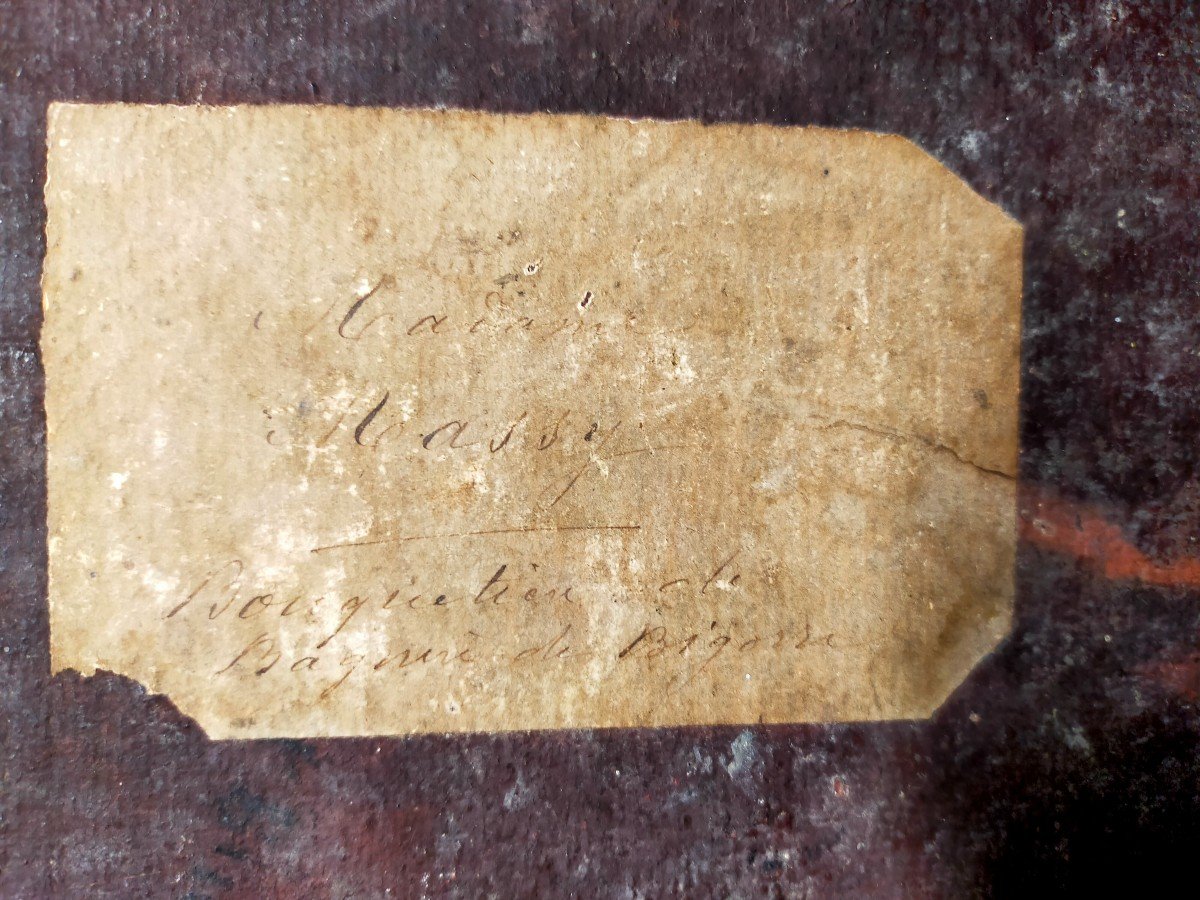 Madame
Massy
Bouquetière de
Bagnère de Bigorre